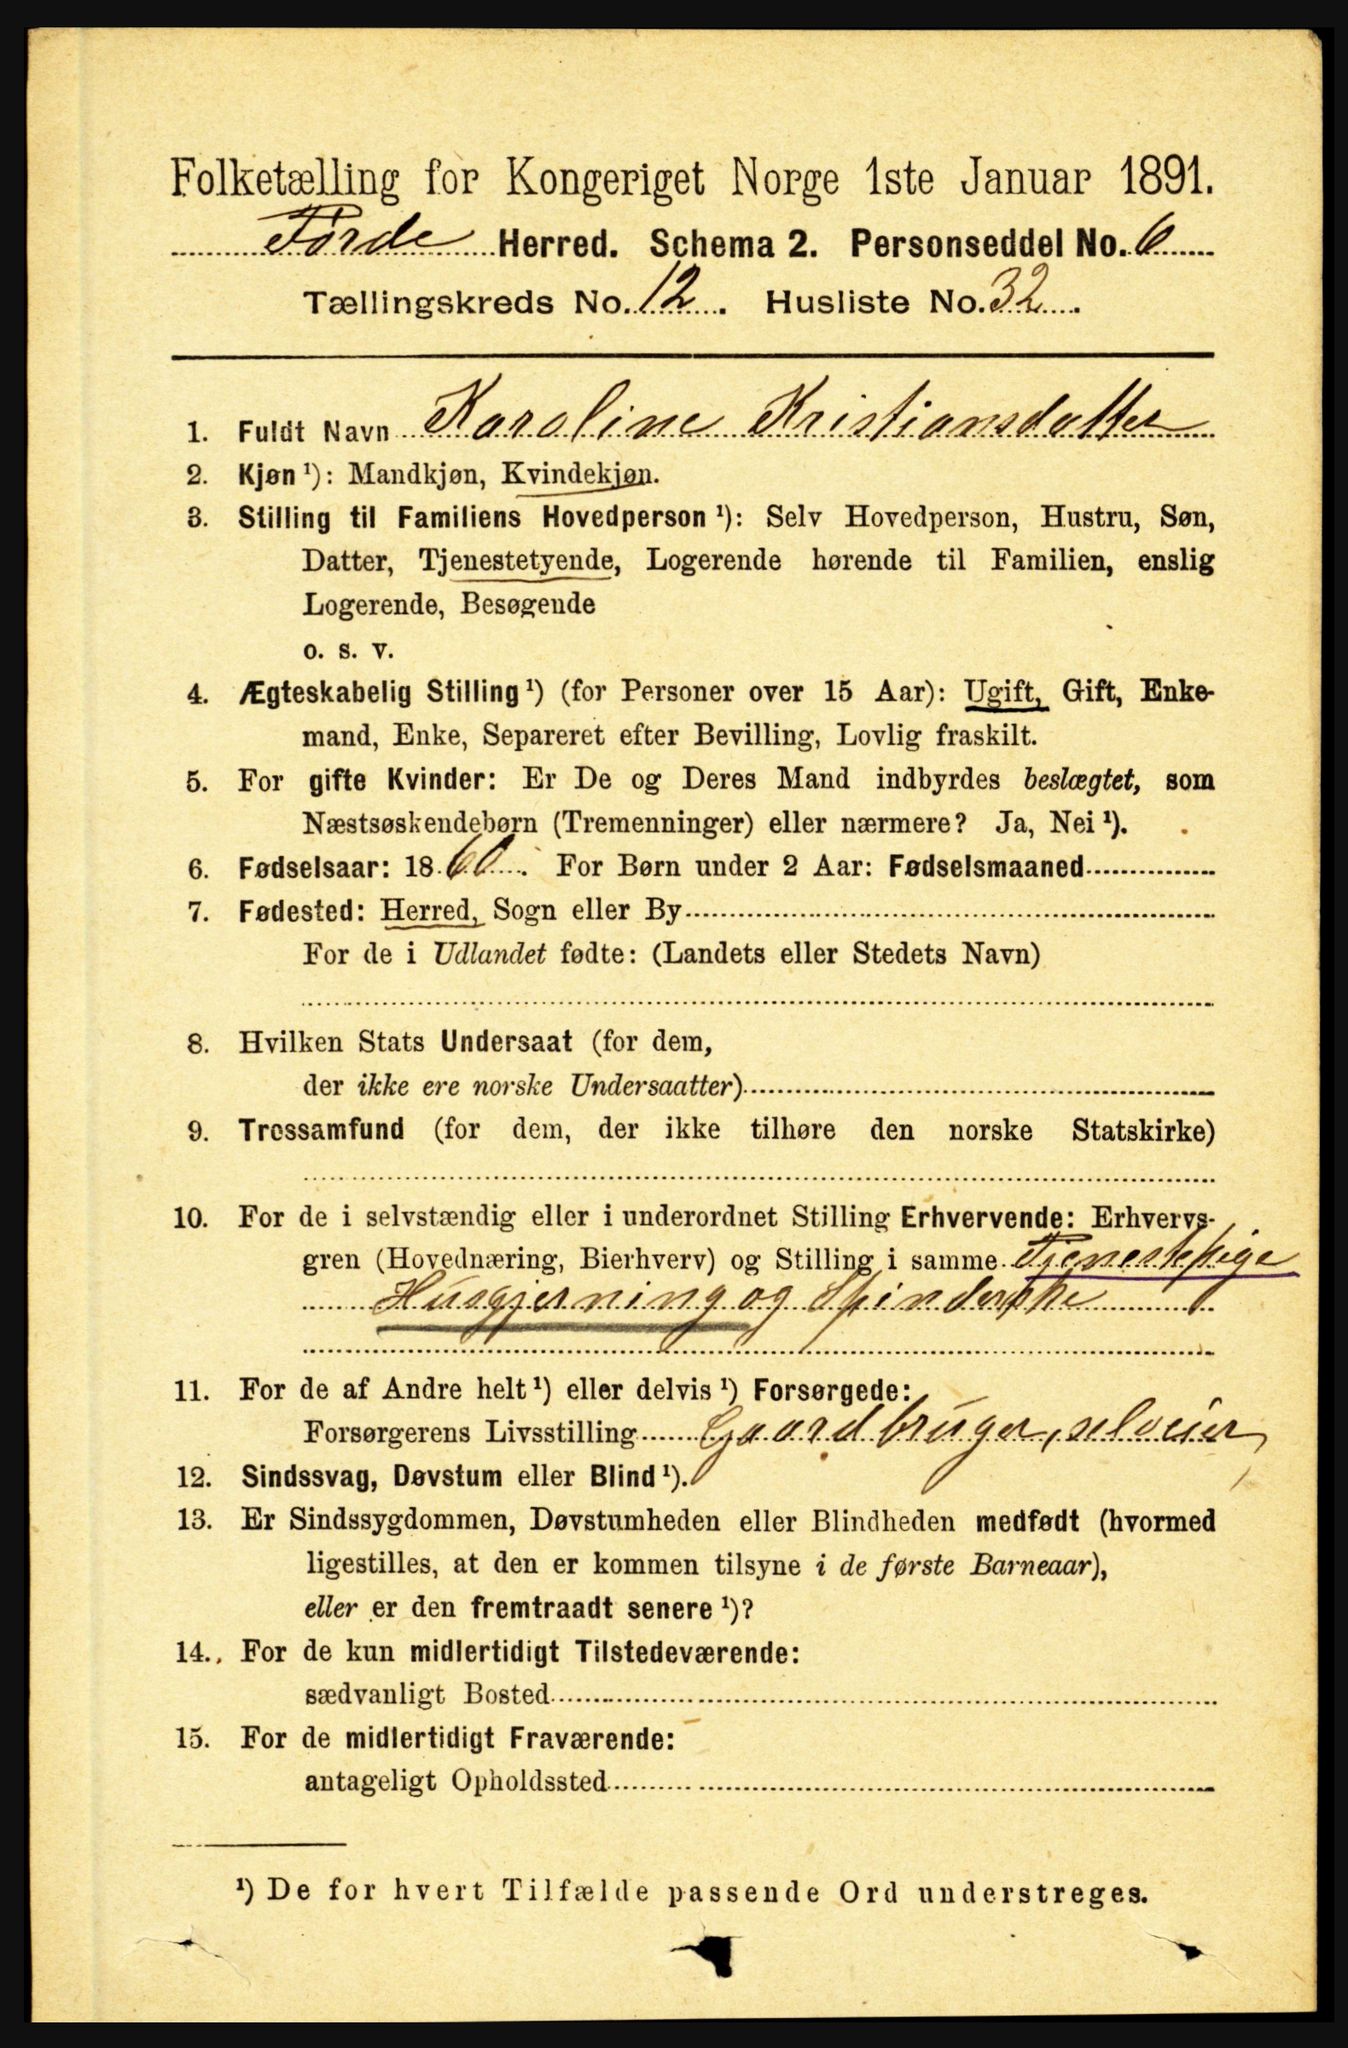 Folketælling for Kongeriget Norge 1ste Januar 1891.
Førde Herred. Schema 2. Personseddel No. 6
Tællingskreds No. 12. Husliste No. 32.
1. Fuldt Navn Karoline Kristiansdatter
2. Kjøn ¹): Mandkjøn, Kvindekjøn.
3. Stilling til Familiens Hovedperson ¹): Selv Hovedperson, Hustru, Søn,
Datter, Tjenestetyende, Logerende hørende til Familien, enslig
Logerende, Besøgende
o. s. v.
4. Ægteskabelig Stilling ¹) (for Personer over 15 Aar): Ugift, Gift, Enke-
mand, Enke, Separeret efter Bevilling, Lovlig fraskilt.
5. For gifte Kvinder: Er De og Deres Mand indbyrdes beslægtet, som
Næstsøskendebørn (Tremenninger) eller nærmere? Ja, Nei ¹).
6. Fødselsaar: 1860. For Børn under 2 Aar: Fødselsmaaned
7. Fødested: Herred, Sogn eller By
For de i Udlandet fødte: (Landets eller Stedets Navn)
8. Hvilken Stats Undersaat (for dem,
der ikke ere norske Undersaatter)
9. Trossamfund (for dem, der ikke tilhøre den norske Statskirke)
10. For de i selvstændig eller i underordnet Stilling Erhvervende: Erhvervs-
gren (Hovednæring, Bierhverv) og Stilling i samme Tjenestepige
Husgjerning og Spinderske
11. For de af Andre helt ¹) eller delvis ¹) Forsørgede:
Forsørgerens Livsstilling Gaardbruger, selveier
12. Sindssvag, Døvstum eller Blind ¹).
13. Er Sindssygdommen, Døvstumheden eller Blindheden medfødt (hvormed
ligestilles, at den er kommen tilsyne i de første Barneaar),
eller er den fremtraadt senere ¹)?
14. For de kun midlertidigt Tilstedeværende:
sædvanligt Bosted
15. For de midlertidigt Fraværende:
antageligt Opholdssted
¹) De for hvert Tilfælde passende Ord understreges.